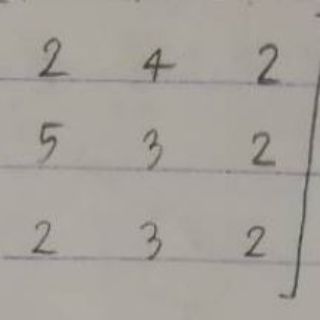 2 4 2
5 3 2
2 3 2